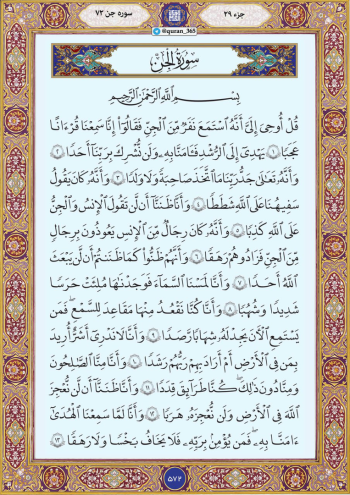 جزء ۲۹
سوره جن ۷۲
@quran_365
سُورَةُ الْجِنِّ
بِسْمِ اللَّهِ الرَّحْمَٰنِ الرَّحِيمِ
قُلْ أُوحِيَ إِلَيَّ أَنَّهُ ٱسْتَمَعَ نَفَرٌ مِّنَ ٱلْجِنِّ فَقَالُوٓاْ إِنَّا سَمِعْنَا قُرْءَانًا
عَجَبًا ۝١ يَهْدِىٓ إِلَى ٱلرُّشْدِ فَـَٔامَنَّا بِهِۦ وَلَن نُّشْرِكَ بِرَبِّنَآ أَحَدًا ۝٢
وَأَنَّهُۥ تَعَٰلَىٰ جَدُّ رَبِّنَا مَا ٱتَّخَذَ صَٰحِبَةً وَلَا وَلَدًا ۝٣ وَأَنَّهُۥ كَانَ يَقُولُ
سَفِيهُنَا عَلَى ٱللَّهِ شَطَطًا ۝٤ وَأَنَّا ظَنَنَّآ أَن لَّن تَقُولَ ٱلْإِنسُ وَٱلْجِنُّ
عَلَى ٱللَّهِ كَذِبًا ۝٥ وَأَنَّهُۥ كَانَ رِجَالٌ مِّنَ ٱلْإِنسِ يَعُوذُونَ بِرِجَالٍ
مِّنَ ٱلْجِنِّ فَزَادُوهُمْ رَهَقًا ۝٦ وَأَنَّهُمْ ظَنُّواْ كَمَا ظَنَنتُمْ أَن لَّن يَبْعَثَ
ٱللَّهُ أَحَدًا ۝٧ وَأَنَّا لَمَسْنَا ٱلسَّمَآءَ فَوَجَدْنَٰهَا مُلِئَتْ حَرَسًا
شَدِيدًا وَشُهُبًا ۝٨ وَأَنَّا كُنَّا نَقْعُدُ مِنْهَا مَقَٰعِدَ لِلسَّمْعِ فَمَن
يَسْتَمِعِ ٱلْـَٔانَ يَجِدْ لَهُۥ شِهَابًا رَّصَدًا ۝٩ وَأَنَّا لَا نَدْرِىٓ أَشَرٌّ أُرِيدَ
بِمَن فِى ٱلْأَرْضِ أَمْ أَرَادَ بِهِمْ رَبُّهُمْ رَشَدًا ۝١٠ وَأَنَّا مِنَّا ٱلصَّٰلِحُونَ
وَمِنَّا دُونَ ذَٰلِكَ كُنَّا طَرَآئِقَ قِدَدًا ۝١١ وَأَنَّا ظَنَنَّآ أَن لَّن نُّعْجِزَ
ٱللَّهَ فِى ٱلْأَرْضِ وَلَن نُّعْجِزَهُۥ هَرَبًا ۝١٢ وَأَنَّا لَمَّا سَمِعْنَا ٱلْهُدَىٰٓ
ءَامَنَّا بِهِۦ فَمَن يُؤْمِنۢ بِرَبِّهِۦ فَلَا يَخَافُ بَخْسًا وَلَا رَهَقًا ۝١٣
۵۷۲